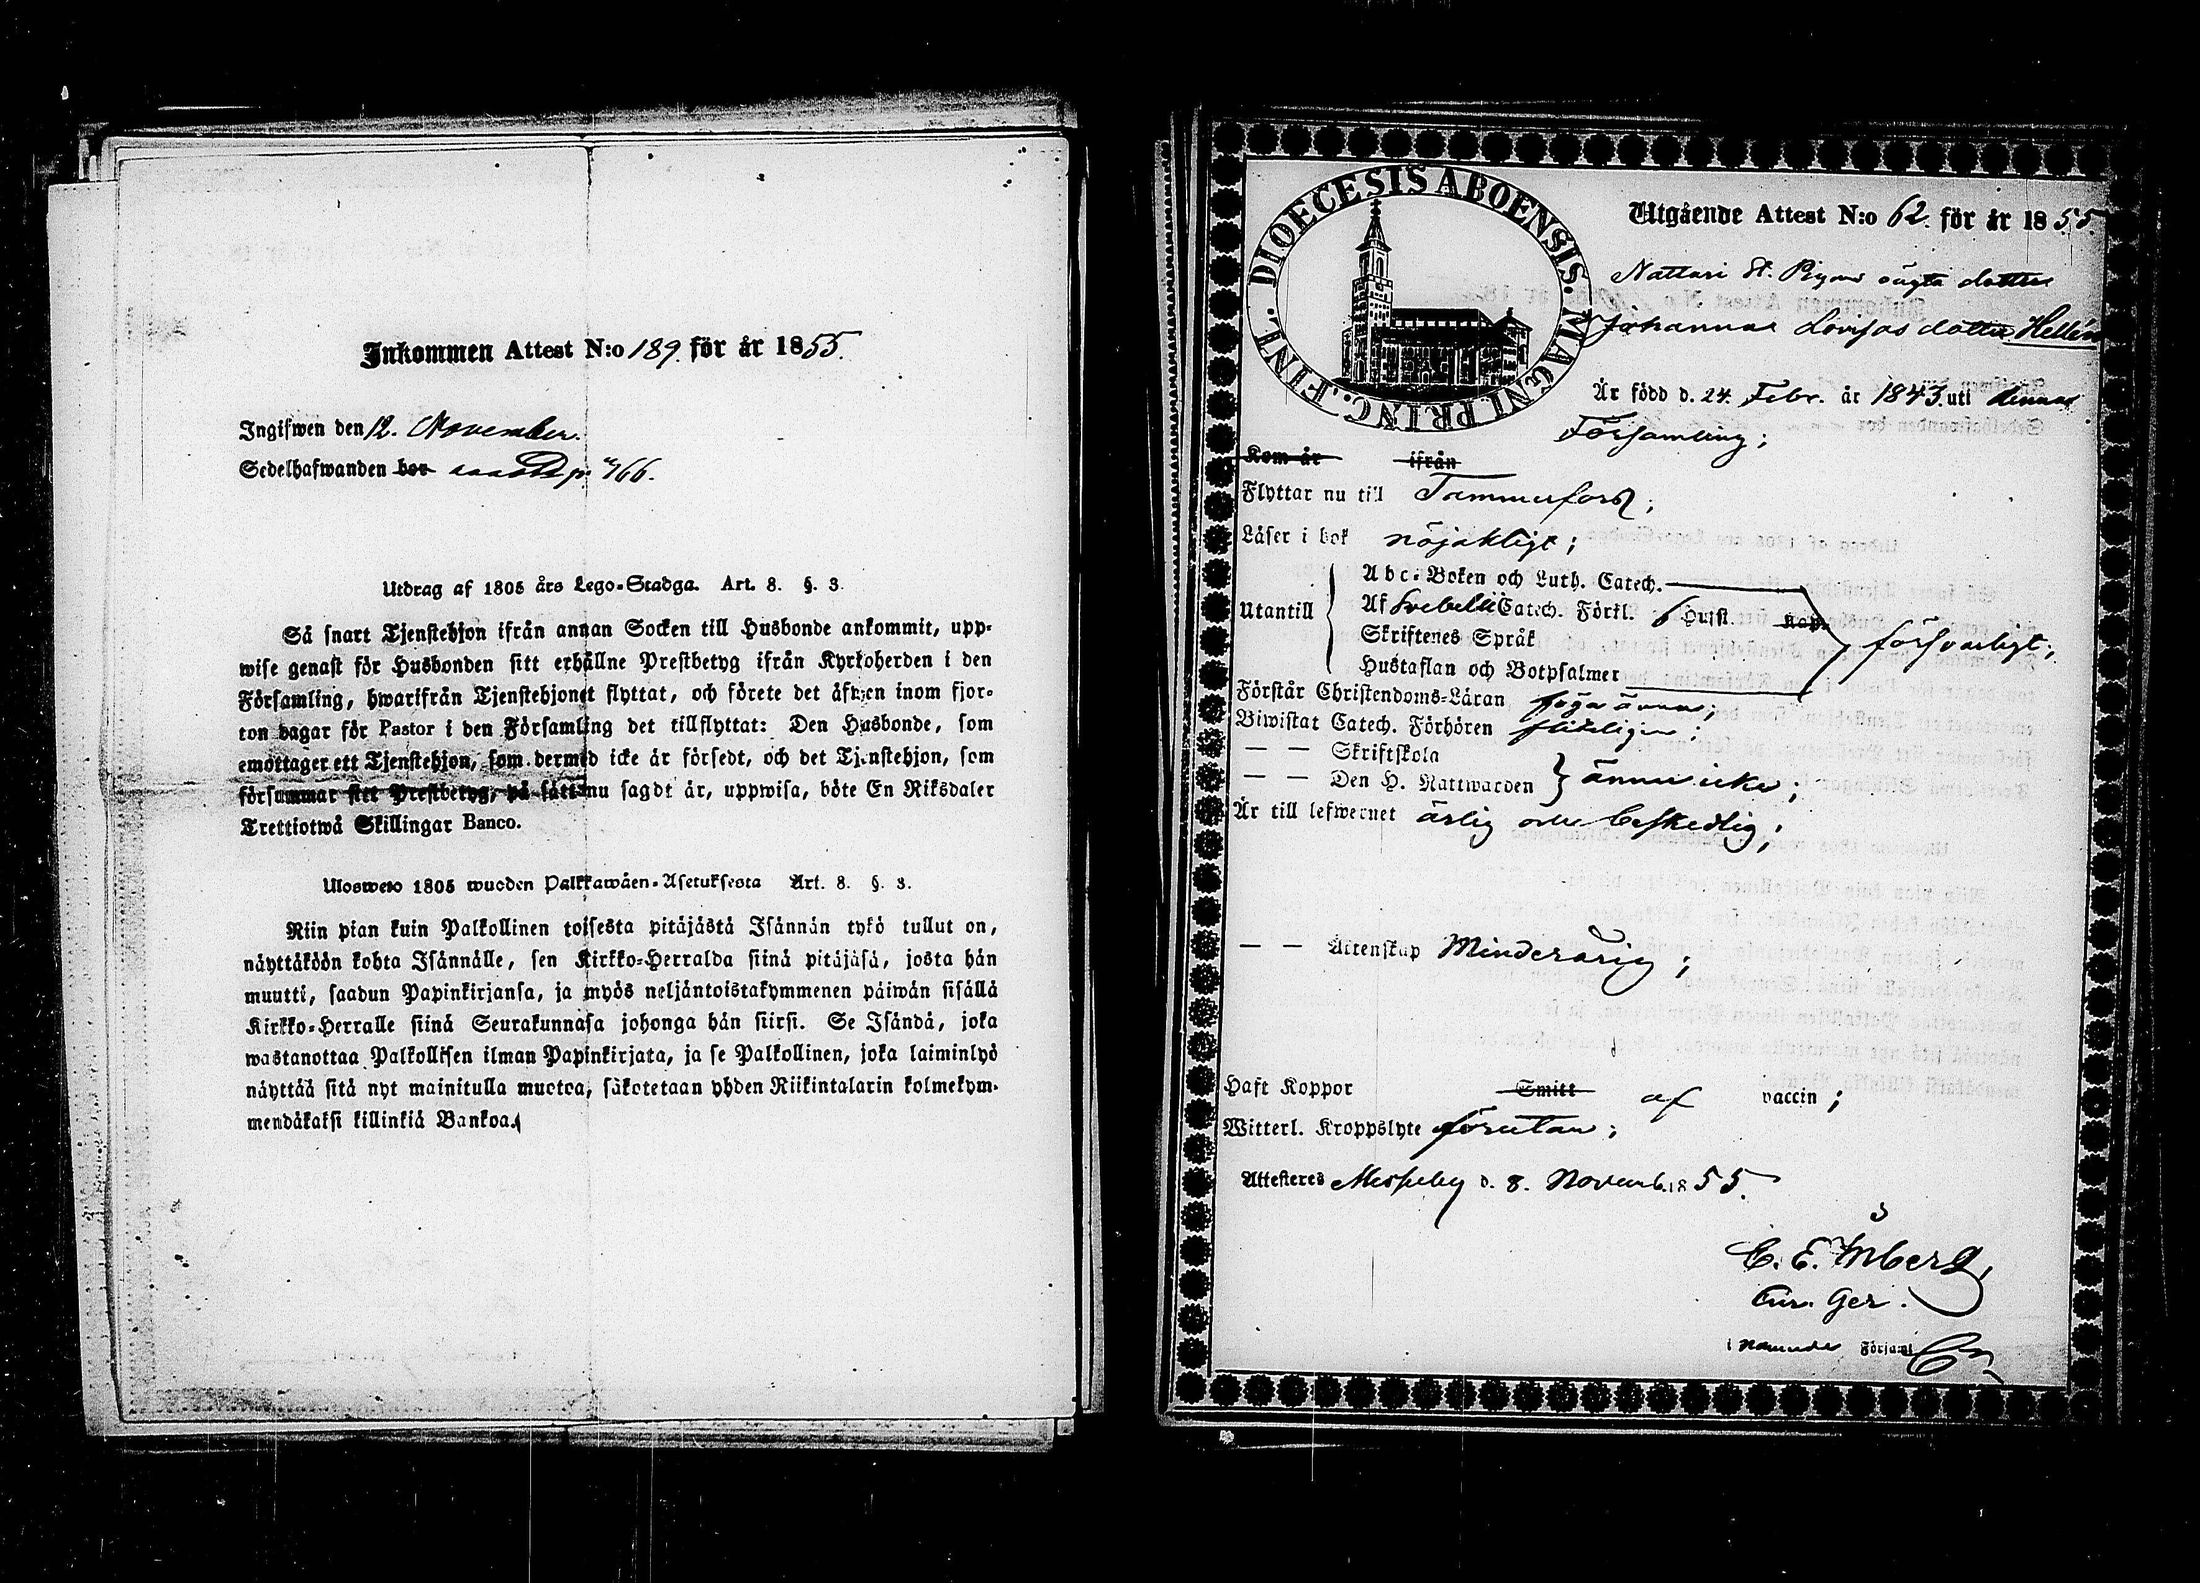 Inkommen Attest N:o 189. för år 1855.
Ingifwen den 12. November.
Sedelhafwanden bor p. 466.
Utdrag af 1805 års Lego-Stadga. Art. 8. §. 3.
Så snart Tjenstehjon ifrån annan Socken till Husbonde ankommit, upp-
wise genast för Husbonden sitt erhållne Prestbetyg ifrån Kyrkoherden i den
Församling, hwarifrån Tjenstehjonet flyttat, och förete det äfwen inom fjor-
ton dagar för Pastor i den Församling det tillflyttat: Den Husbonde, som
emottager ett Tjenstehjon, som dermed icke är försedt, och det Tjenstehjon, som
försummar sitt Prestbetyg, på sätt nu sagdt är, uppwisa, böte En Riksdaler
Trettiotwå Skillingar Banco.
Ulosweto 1805 wuoden Palkkawäen-Asetuksesta Art. 8. §. 3.
Niin pian kuin Palkollinen toisesta pitäjästä Isännän tykö tullut on,
näyttäköön kohta Isännälle, sen Kirkko-Herralda siinä pitäjäsä, josta hän
muutti, saadun Papinkirjansa, ja myös neljäntoistakymmenen päiwän sisällä
Kirkko-Herralle siinä Seurakunnasa johonga hän siirsi. Se Isändä, joka
wastanottaa Palkollisen ilman Papinkirjata, ja se Palkollinen, joka laiminlyö
näyttää sitä nyt mainitulla muotoa, sakotetaan yhden Riikintalarin kolmekym-
mendäkaksi killinkiä Bankoa.
DIOECESIS ABOENSIS. MAGNI PRINC. FINL.
Utgående Attest N:o 62. för år 1855.
Nattari St. oägta dotter
Johanna Lovisas dotter Hellén
Är född d. 24. Febr. år 1843. uti denna
Församling;
Kom år ifrån
Flyttar nu till Tammerfors;
Läser i bok nöjaktigt;
Utantill
Abc-Boken och Luth. Catech.
Af Svebelii Catech. Förkl. 6 Hufst. Kap.
Skriftenes Språk
Hustaflan och Botpsalmer
försvarligt;
Förstår Christendoms-Läran föga ännu;
Biwistat Catech. Förhören fliteligen;
— — Skriftskola
— — Den H. Nattwarden
ännu icke;
Är till lefwernet ärlig och beskedlig;
— — Ächtenskap Minderårig;
Haft Koppor Smitt af vaccin;
Witterl. Kroppslyte förutan;
Attesteres Messuby d. 8. Novemb. 1855.
C. E. Åberg,
Cur. Ger.
i nämnde Församl.